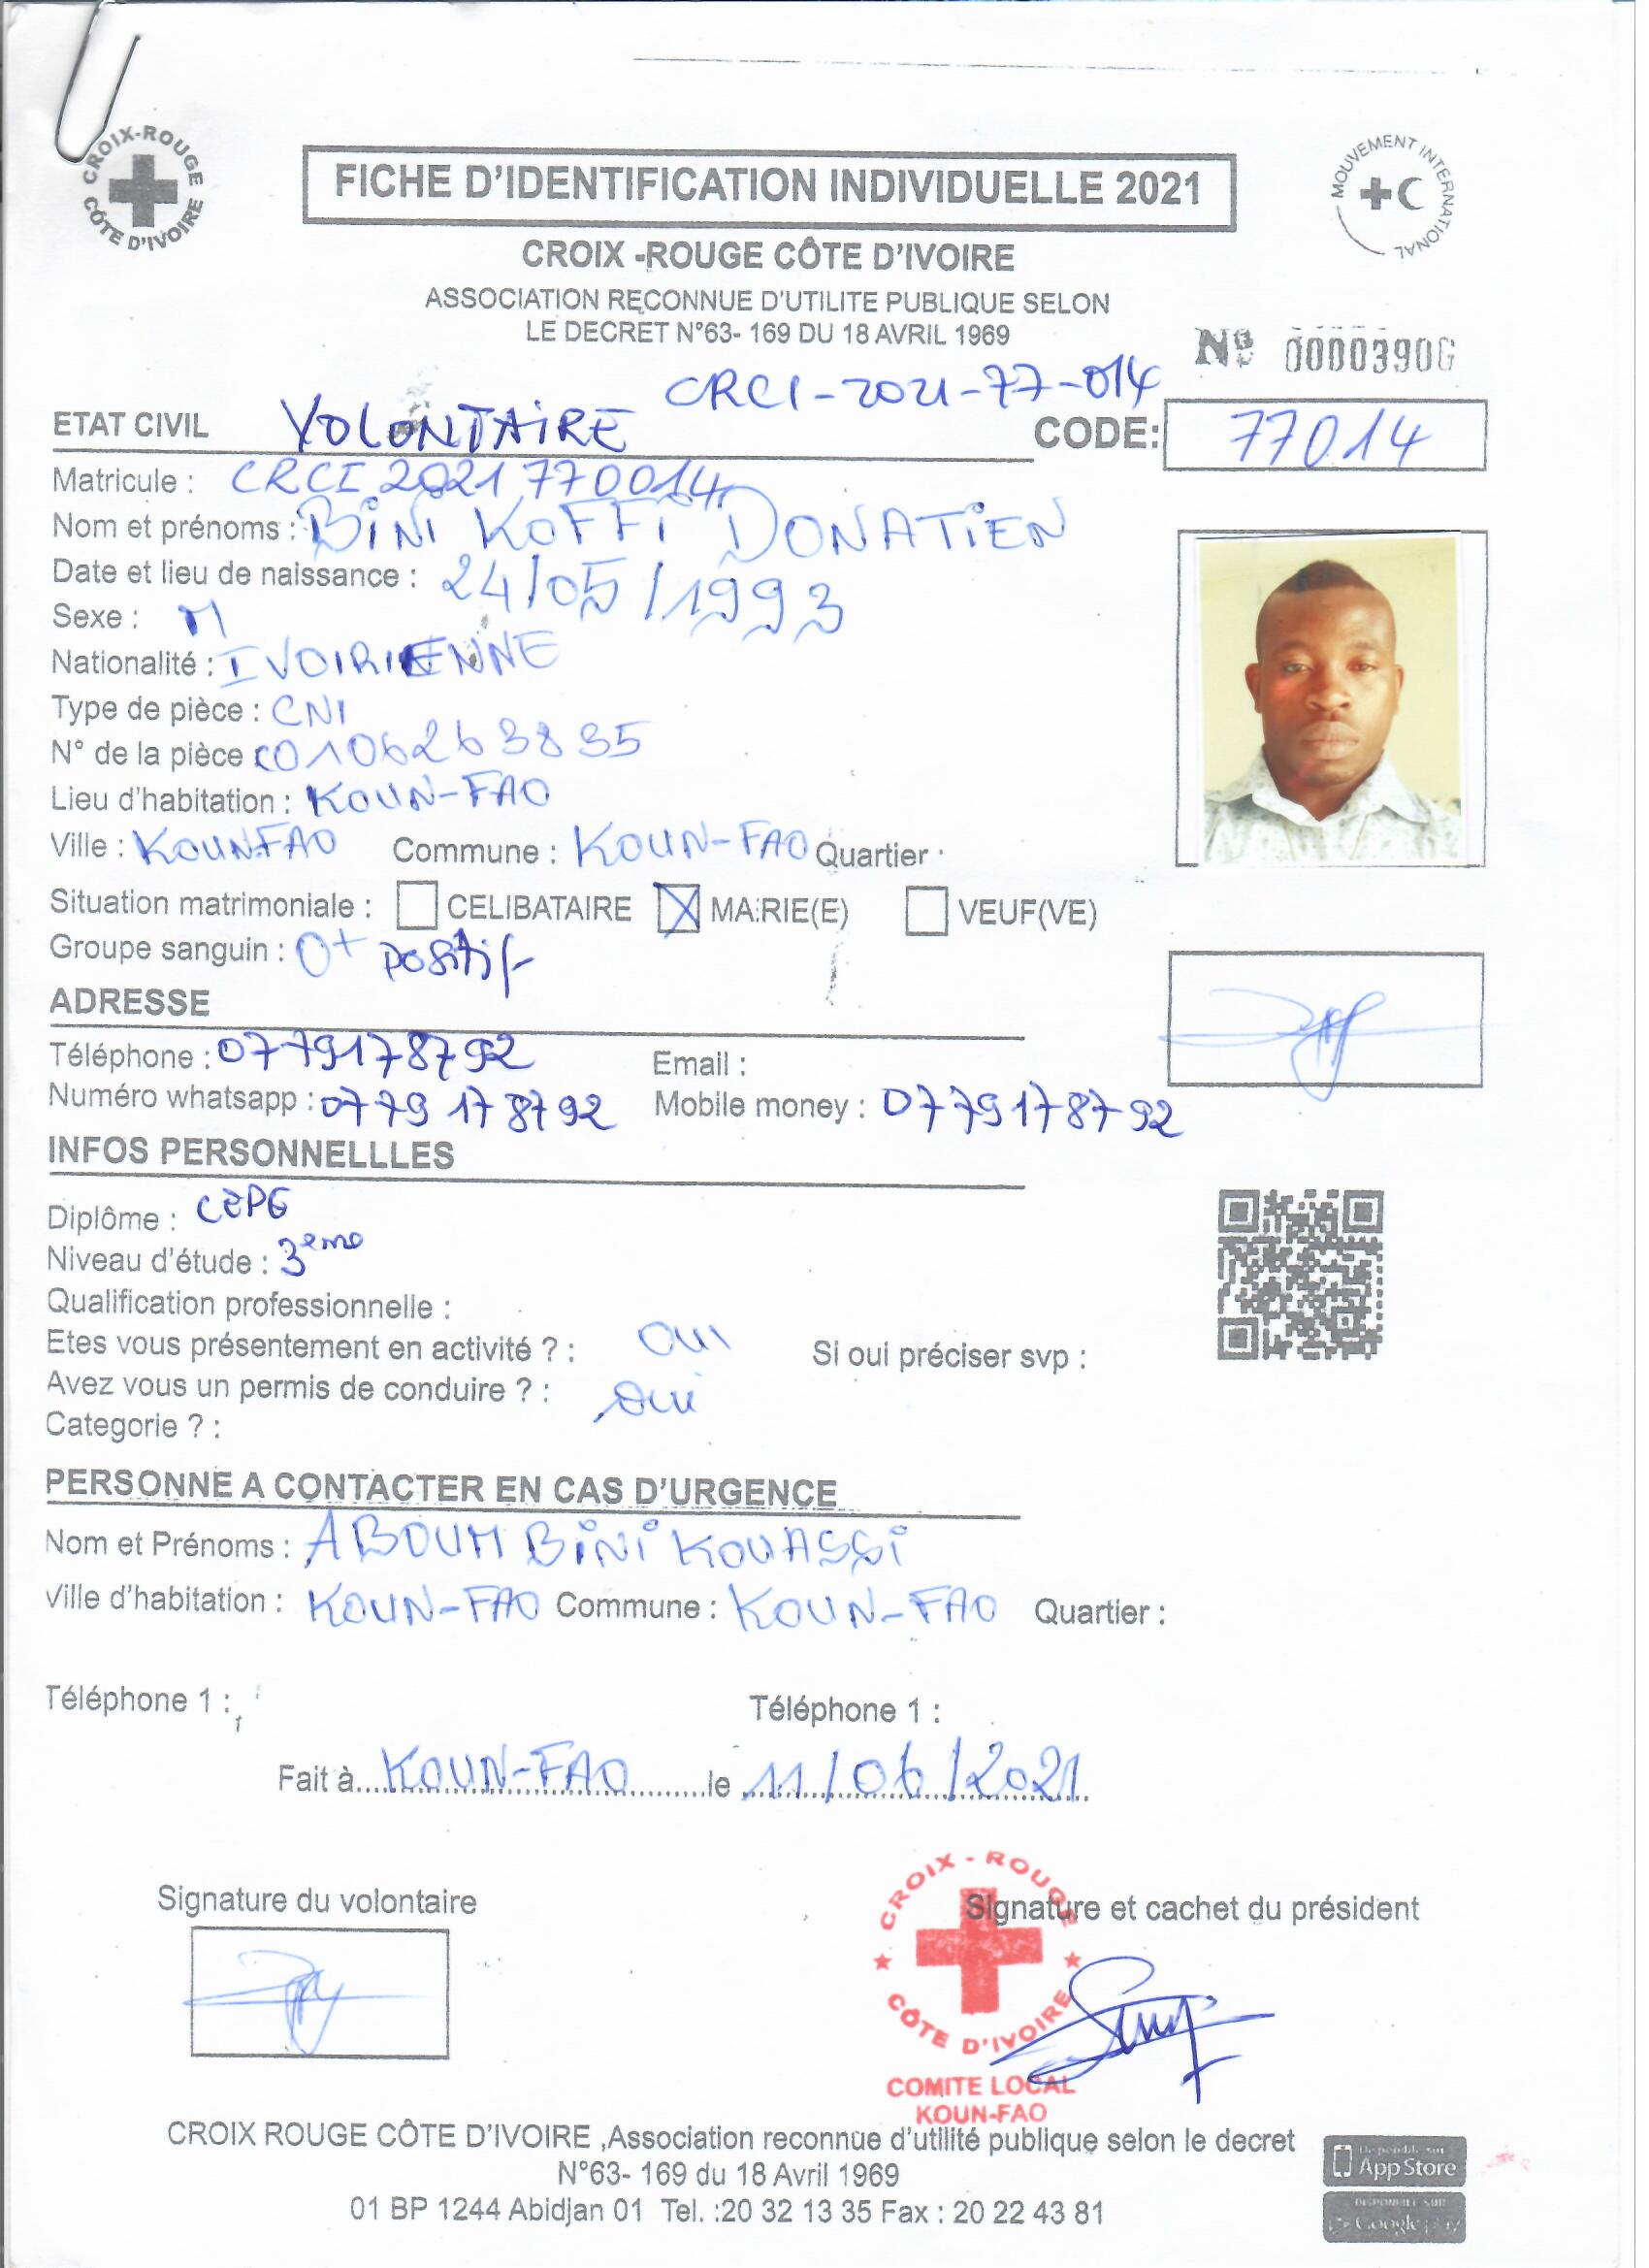 CROIX-ROUGE
CÔTE D'IVOIRE
FICHE D'IDENTIFICATION INDIVIDUELLE 2021
MOUVEMENT INTERNATIONAL
CROIX -ROUGE CÔTE D'IVOIRE
ASSOCIATION RECONNUE D'UTILITE PUBLIQUE SELON
LE DECRET N°63- 169 DU 18 AVRIL 1969
CRCI-2021-77-014
ETAT CIVIL VOLONTAIRE CODE: 77014
Matricule : CRCI 2021 770014
Nom et prénoms : BINI KOFFI DONATIEN
Date et lieu de naissance : 24/05/1993
Sexe : M
Nationalité : IVOIRIENNE
Type de pièce : CNI
N° de la pièce C0106263835
Lieu d'habitation : KOUN-FAO
Ville : KOUNFAO Commune : KOUN-FAO Quartier :
Situation matrimoniale : CELIBATAIRE X MARIE(E) VEUF(VE)
Groupe sanguin : O+ positif
ADRESSE
Téléphone : 0779178792 Email :
Numéro whatsapp : 0779 178792 Mobile money : 0779178792
INFOS PERSONNELLLES
Diplôme : CEPE
Niveau d'étude : 3eme
Qualification professionnelle :
Etes vous présentement en activité ? : OUI Si oui préciser svp :
Avez vous un permis de conduire ? : OUI
Categorie ? :
PERSONNE A CONTACTER EN CAS D'URGENCE
Nom et Prénoms : ABOUM BINI KOUASSI
Ville d'habitation : KOUN-FAO Commune : KOUN-FAO Quartier :
Téléphone 1 : Téléphone 1 :
Fait à KOUN-FAO le 11/06/2021
Signature du volontaire Signature et cachet du président
CROIX - ROUGE
CÔTE D'IVOIRE
COMITE LOCAL
KOUN-FAO
CROIX ROUGE CÔTE D'IVOIRE ,Association reconnue d'utilité publique selon le decret
N°63- 169 du 18 Avril 1969
01 BP 1244 Abidjan 01 Tel. :20 32 13 35 Fax : 20 22 43 81
Disponible sur
App Store
DISPONIBLE SUR
Google play